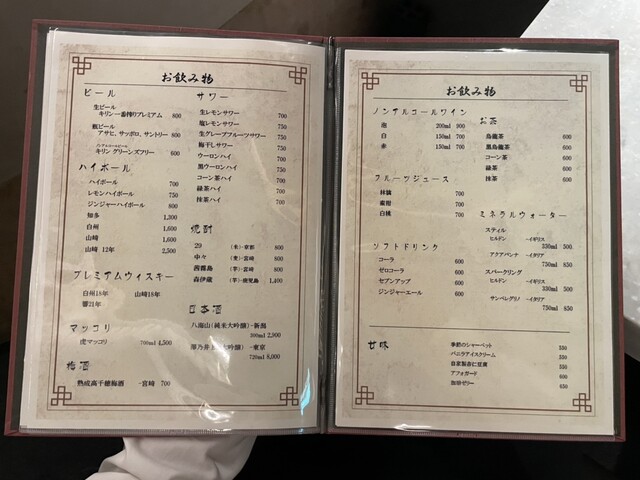 お飲み物
ビール
生ビール
キリン一番搾りプレミアム 800
瓶ビール
アサヒ、サッポロ、サントリー 800
ノンアルコールビール
キリン グリーンズフリー 600
ハイボール
ハイボール 700
レモンハイボール 750
ジンジャーハイボール 800
知多 1,300
白州 1,600
山崎 1,600
山崎 12年 2,500
プレミアムウィスキー
白州18年 山崎18年
響21年
マッコリ
虎マッコリ 760ml 4,500
梅酒
熟成高千穂梅酒 -宮崎 700
サワー
生レモンサワー 700
塩レモンサワー 750
生グレープフルーツサワー 750
梅干しサワー 750
ウーロンハイ 700
黒ウーロンハイ 750
コーン茶ハイ 700
緑茶ハイ 700
抹茶ハイ 700
焼酎
29 (麦)-京都 800
中々 (麦)-宮崎 800
茜霧島 (芋)-宮崎 800
森伊蔵 (芋)-鹿児島 1,400
日本酒
八海山(純米大吟醸)-新潟
300ml 2,900
澤乃井
-東京
720ml 8,000
お飲み物
ノンアルコールワイン
泡 200ml 900
白 150ml 700
赤 150ml 700
フルーツジュース
林檎 700
蜜柑 700
白桃 700
ソフトドリンク
コーラ 600
ゼロコーラ 600
セブンアップ 600
ジンジャーエール 600
お茶
烏龍茶 600
黒烏龍茶 600
コーン茶 600
緑茶 600
抹茶 600
ミネラルウォーター
スティル
ヒルドン -イギリス
330ml 500
アクアパンナ -イタリア
750ml 850
スパークリング
ヒルドン -イギリス
330ml 500
サンペレグリノ -イタリア
750ml 850
甘味
季節のシャーベット 550
バニラアイスクリーム 550
自家製杏仁豆腐 550
アフォガード 600
珈琲ゼリー 650